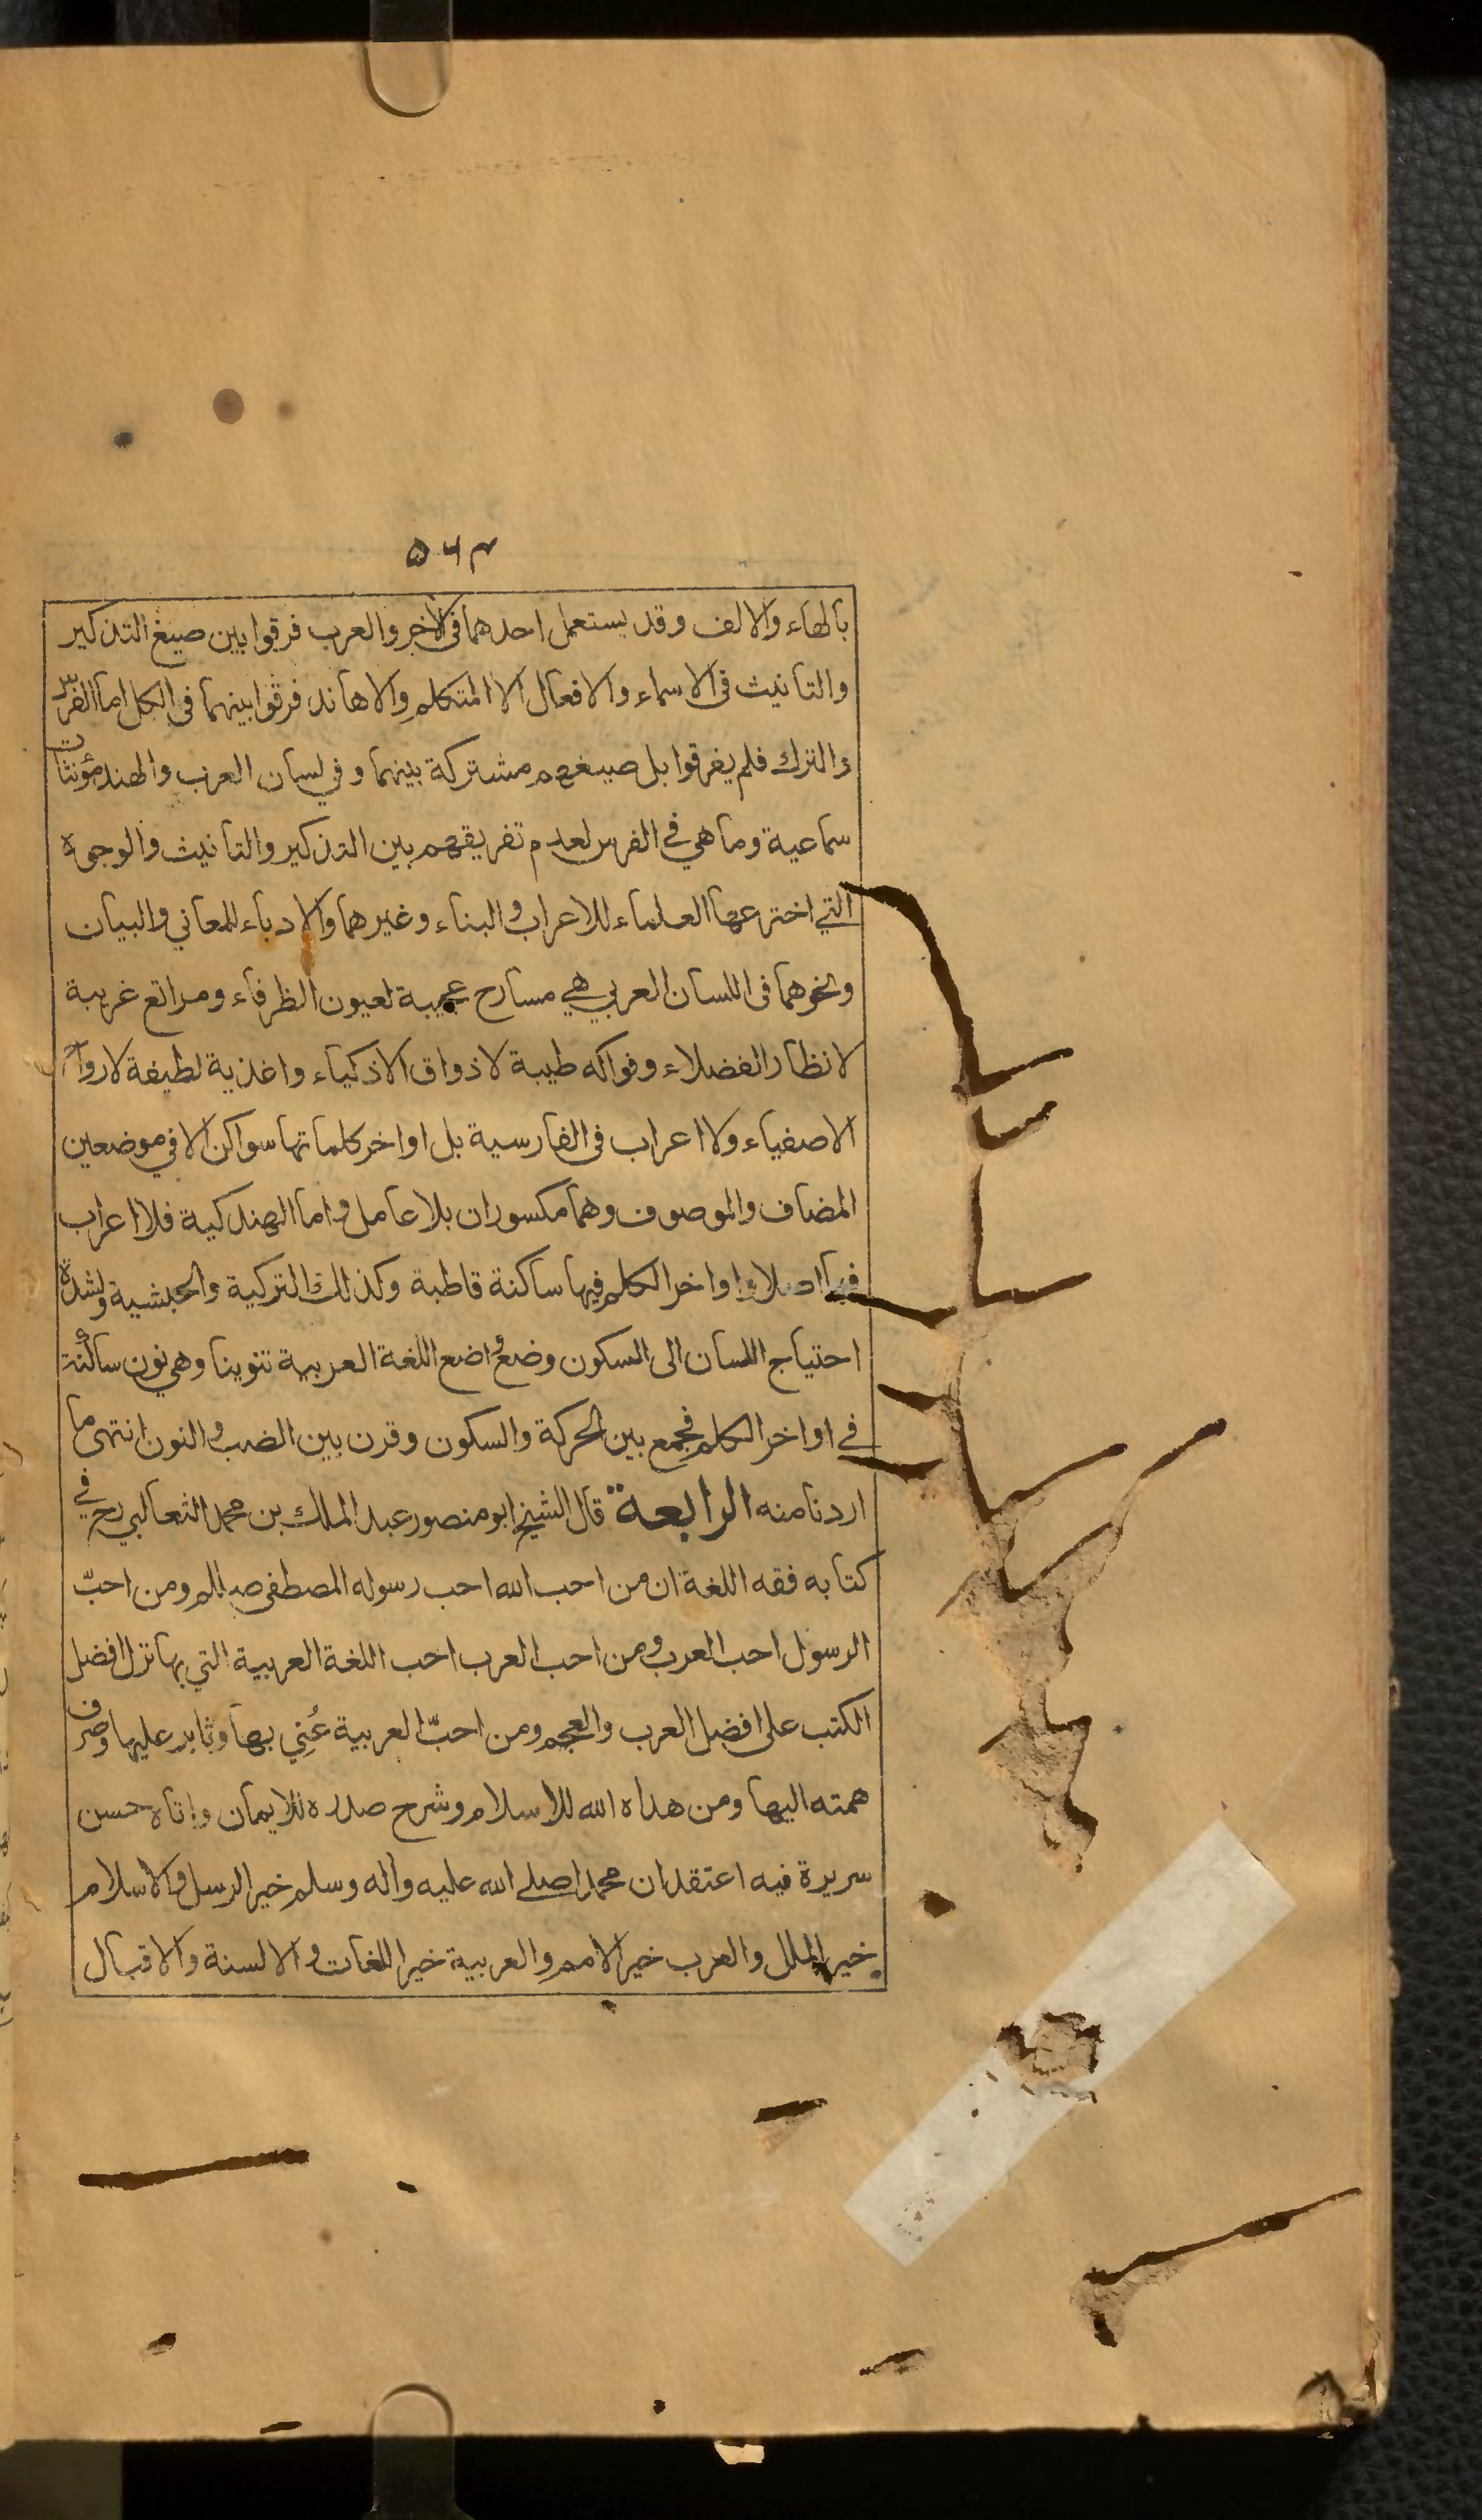 ۵۶۳
بالهاء والالف وقد يستعمل احدهما فى الآخر والعرب فرقوا بين صيغ التذكير
والتانيث فى الاسماء والافعال الا المتكلم والاهاند فرقوا بينهما فى الكل اما الفرس
والترك فلم يفرقوا بل صيغهم مشتركة بينهما وفي لسان العرب والهند مؤنثات
سماعية وما هي في الفرس لعدم تفريقهم بين التذكير والتانيث والوجوه
التي اخترعها العلماء للاعراب والبناء وغيرهما والادباء للمعاني والبيان
ونحوهما فى اللسان العربي هي مسارح عجيبة لعيون الظرفاء ومراتع غريبة
لانظار الفضلاء وفواكه طيبة لاذواق الاذكياء واغذية لطيفة لارواح
الاصفياء ولا اعراب فى الفارسية بل اواخر كلماتها سواكن الا في موضعين
المضاف والموصوف وهما مكسوران بلا عامل واما الهندكية فلا اعراب
فيها اصلا واواخر الكلم فيها ساكنة قاطبة وكذلك التركية والحبشية ولشدة
احتياج اللسان الى السكون وضع واضع اللغة العربية تنوينا وهي نون ساكنة
في اواخر الكلم فجمع بين الحركة والسكون وقرن بين الضب والنون انتهى ما
اردنا منه الرابعة قال الشيخ ابو منصور عبد الملك بن محمد الثعالبي رح في
كتابه فقه اللغة ان من احب الله احب رسوله المصطفى صللم ومن احبّ
الرسول احب العرب ومن احب العرب احب اللغة العربية التي بها نزل افضل
الكتب على افضل العرب والعجم ومن احبّ العربية عُنِي بها وثابر عليها وصرف
همته اليها ومن هداه الله للاسلام وشرح صدره للايمان واتاه حسن
سريرة فيه اعتقد ان محمدا صلے الله عليه وآله وسلم خير الرسل والاسلام
خير الملل والعرب خير الامم والعربية خير اللغات والالسنة والاقبال